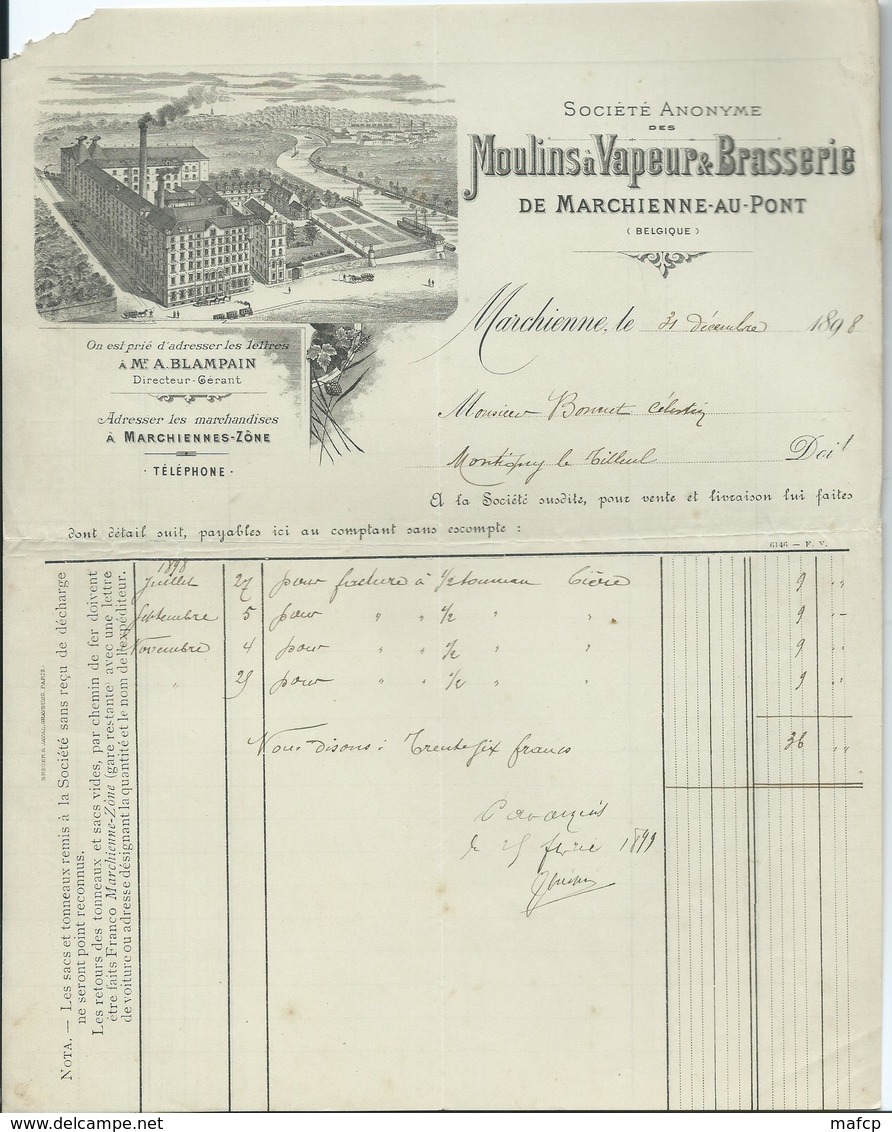 SOCIÉTÉ ANONYME
DES
Moulins à Vapeur & Brasserie
DE MARCHIENNE-AU-PONT
( BELGIQUE )
Marchienne, le 31 décembre 1898
On est prié d'adresser les lettres
À Mr A. BLAMPAIN
Directeur-Gérant
Adresser les marchandises
À MARCHIENNES-ZÔNE
TÉLÉPHONE
Monsieur Bonnet Célestin
Montigny le Tilleul Doit
A la Société susdite, pour vente et livraison lui faites
dont détail suit, payables ici au comptant sans escompte :
6146 — F. V.
1898
Juillet 27 pour facture à 1/2 tonneau bière 9 "
Septembre 5 pour " " 1/2 " " 9 -
Novembre 4 pour " " 1/2 " " 9 "
" 25 pour " " 1/2 " " 9 "
36 "
Nous disons : Trente six francs
le 25 1899
NOTA. — Les sacs et tonneaux remis à la Société sans reçu de décharge
ne seront point reconnus.
Les retours des tonneaux et sacs vides, par chemin de fer doivent
être faits Franco Marchienne-Zône (gare restante avec une lettre
de voiture ou adresse désignant la quantité et le nom de l'expéditeur.
mafcp